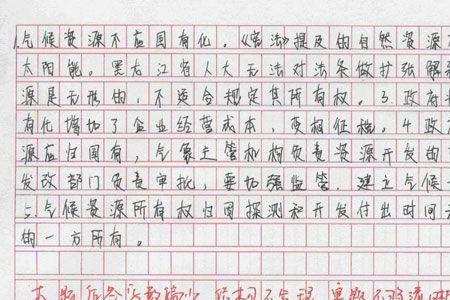 气候资源不应国有化。《宪法》提及的自然资源不
太阳能。黑龙江省人大无法对法条做扩张解释
源是无形的，不适合规定其所有权。3.政府将
有化增加了企业经营成本，变相征税。4.政
源应归国有，气象主管机构负责资源开发的
发改部门负责审批，要加强监管，建立气候
六.气候资源所有权归因探测和开发付出时间
的一方所有。
本题